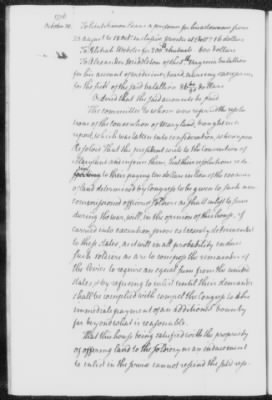 1776
October 30.
To Lieut. Simon Vears a prisoner for his allowance from
23 august to 18 octr. inclusive, 8 weeks at 2 doll. 16 dollars
To Elihab Webster for 200 ... 600 dollars
To Alexander Middleton of the 5th Virginia battalion
for his account of medicines, and attending surgeons
for the sick of the said battalion 86 dollars
Ordered that the said accounts be paid
The committee to whom were referred the resolu-
tions of the convention of Maryland, brought in a
report, which was taken into consideration, whereupon
Resolved That the president write to the Convention of
Maryland and inform them, that their resolution
to their paying ten dollars in lieu of the 100 acres
of land determined by Congress to be given to such non
commissioned officers & soldiers as shall inlist to serve
during the war, will, in the opinion of this house, if
carried into execution prove extremely detrimental
to these states, as it will in all probability induce
such soldiers as are to compose the remainder of
the levies to require an equal sum from the united
states, & by refusing to inlist until their demands
shall be complied with compel the Congress to the
immediate payment of an additional bounty
far beyond what is reasonable.
That this house being satisfied with the propriety
of offering land to the soldiery as an inducement
to inlist in the service cannot rescind the said reso-